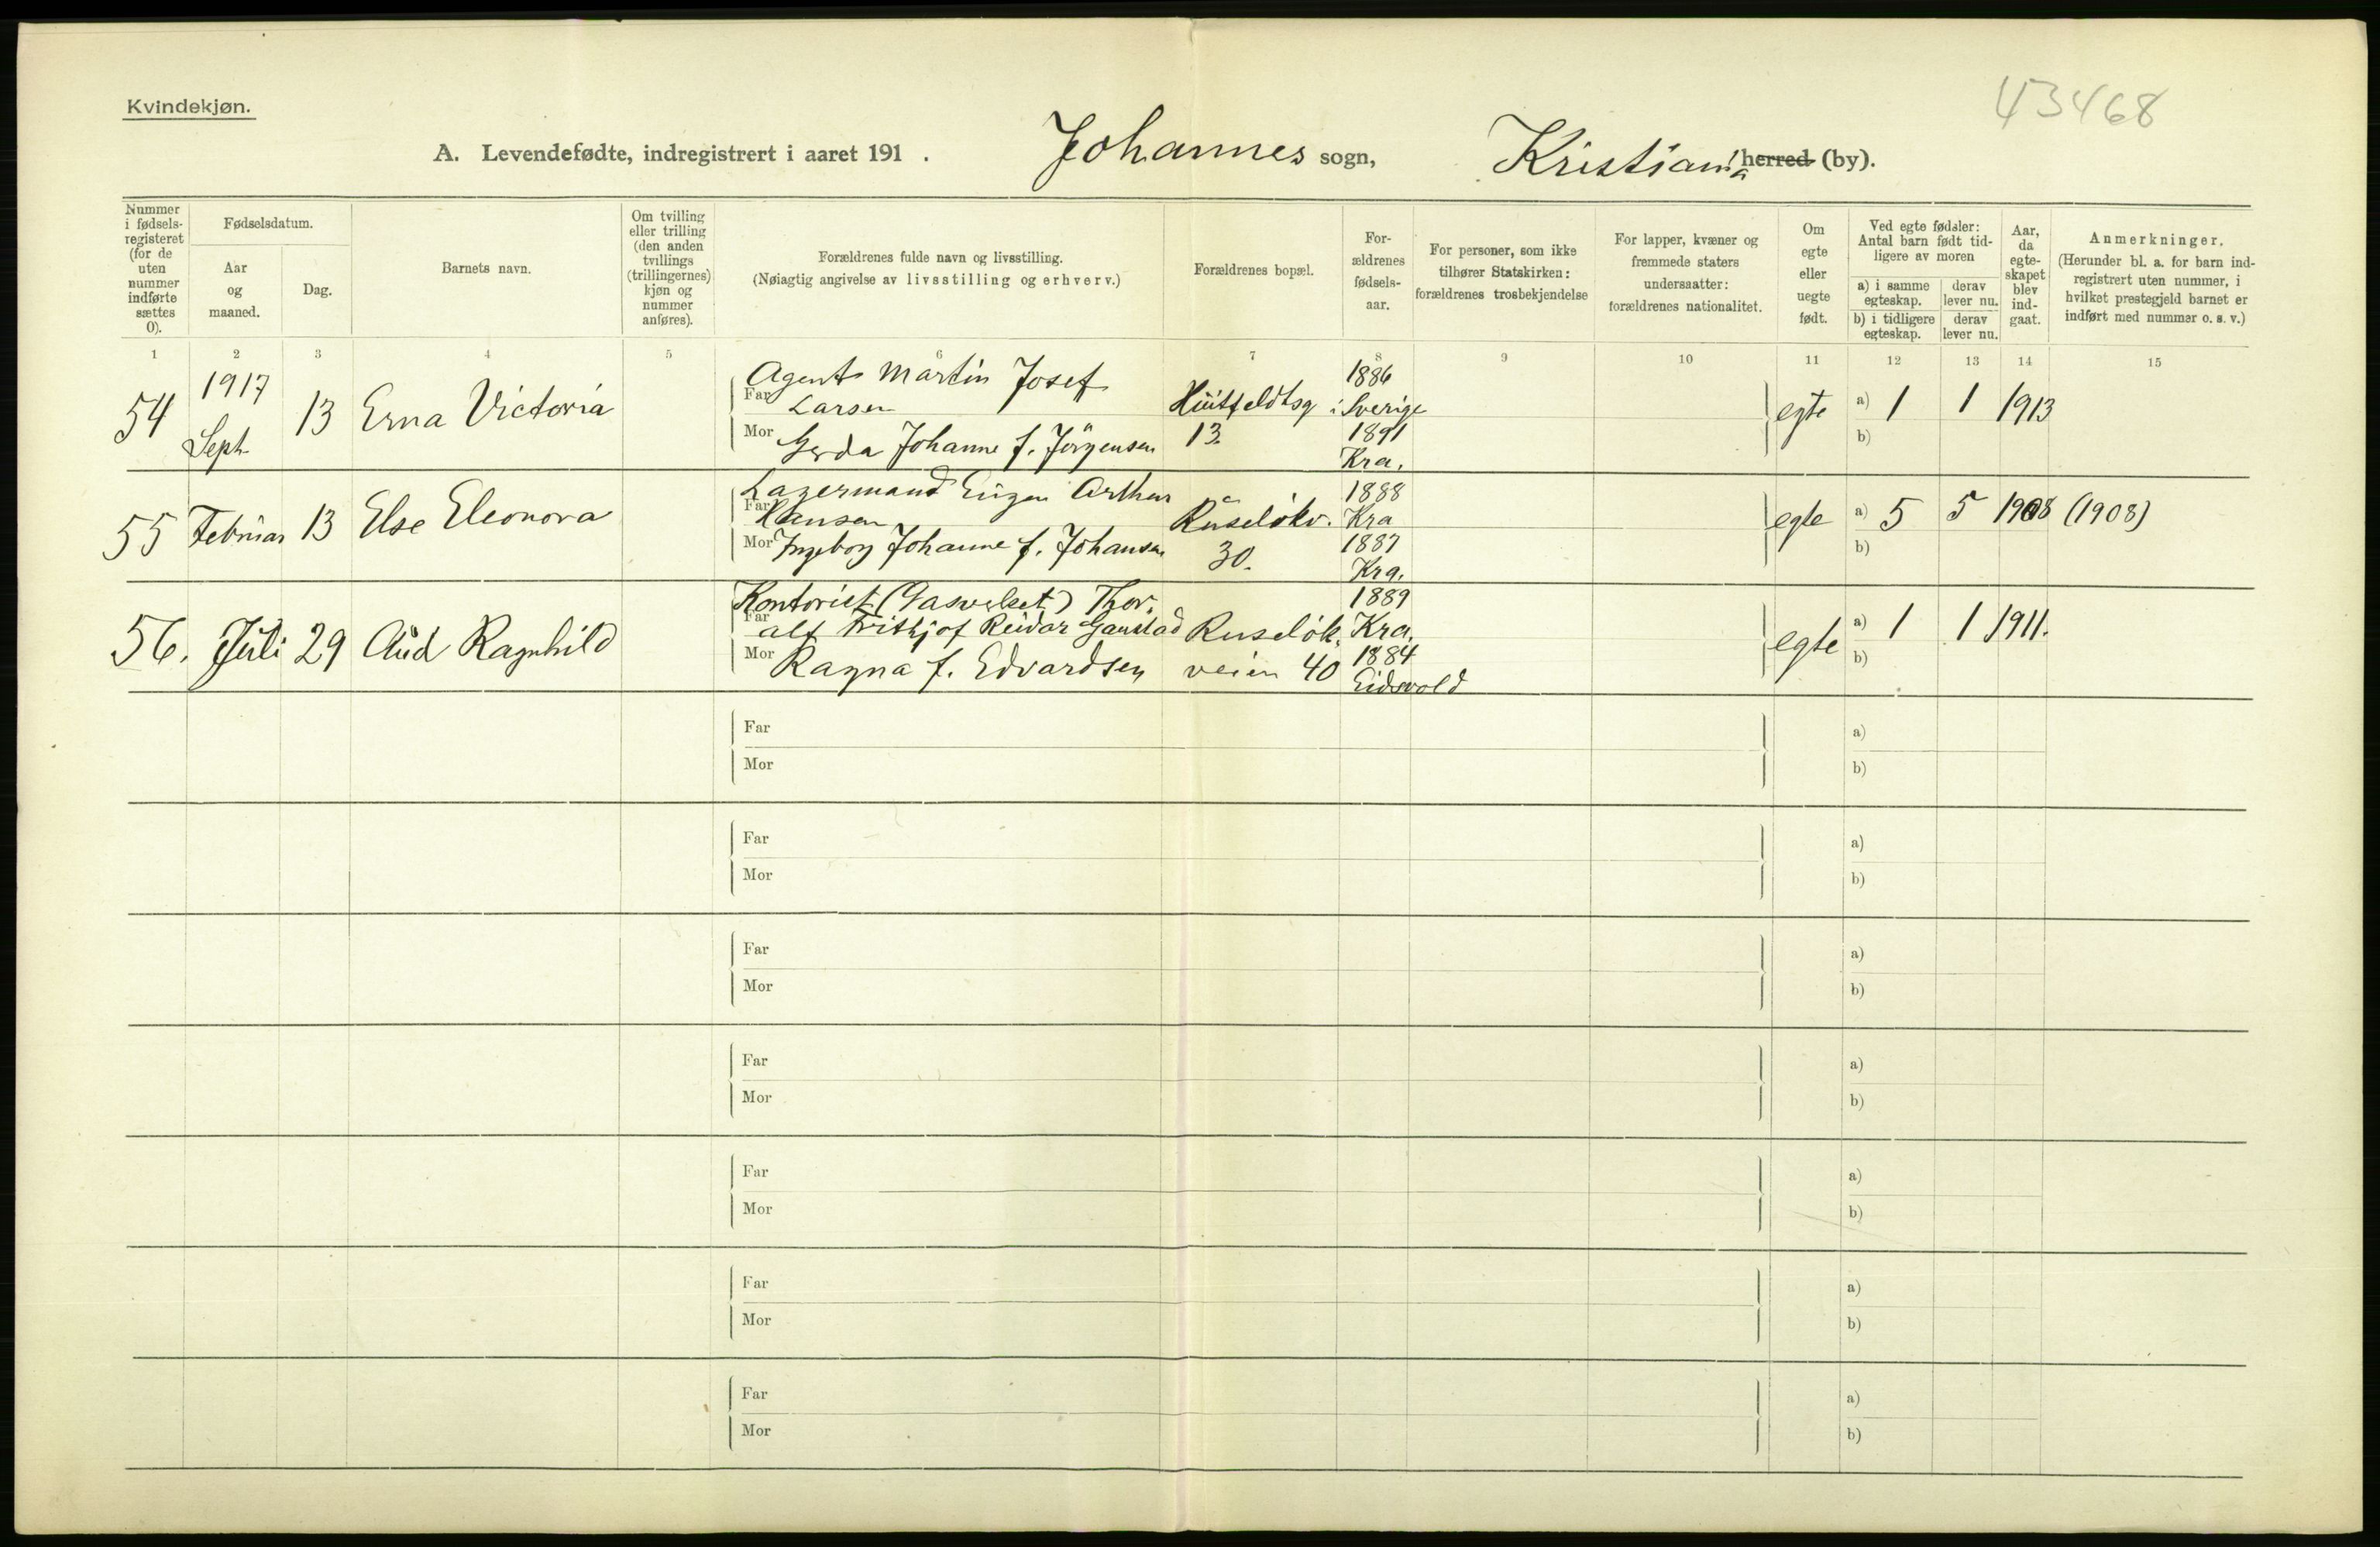 43468
Kvindekjøn.
A. Levendefødte, indregistrert i aaret 191 . Johannes sogn, Kristiania herred (by).
Nummer i fødsels-registeret (for de uten nummer indførte sættes 0).
Fødselsdatum.
Aar og maaned.
Dag.
Barnets navn.
Om tvilling eller trilling (den anden tvillings (trillingernes) kjøn og nummer anføres).
Forældrenes fulde navn og livsstilling.
(Nøiagtig angivelse av livsstilling og erhverv.)
Forældrenes bopæl.
For-ældrenes fødsels-aar.
For personer, som ikke tilhører Statskirken: forældrenes trosbekjendelse
For lapper, kvæner og fremmede staters undersaatter: forældrenes nationalitet.
Om egte eller uegte født.
Ved egte fødsler: Antal barn født tid-ligere av moren
a) i samme egteskap.
derav lever nu.
b) i tidligere egteskap.
derav lever nu.
Aar, da egte-skapet blev ind-gaat.
Anmerkninger.
(Herunder bl. a. for barn ind-registrert uten nummer, i hvilket prestegjeld barnet er indført med nummer o. s. v.)
1 2 3 4 5 6 7 8 9 10 11 12 13 14 15
54 1917 Sept. 13 Erna Victoria
Far Agent Martin Josef Larsen
Mor Gerda Johanne f. Jörgensen
Hüitfeldtsg 13.
1886 i Sverige
1891 Kra.
egte a) 1 1 1913
b)
55 Februar 13 Else Eleonora
Far Lagermand Eugen Arthur Hansen
Mor Ingeborg Johanne f. Johansen
Ruselökv. 30.
1888 Kra
1887 Kra.
egte a) 5 5 1908 (1908)
b)
56. Juli 29 Aud Ragnhild
Far Kontorist (Gasverket) Thor. Alf Frithjof Reidar Gaustad
Mor Ragna f. Edvardsen
Ruselök. veien 40
1889 Kra.
1884 Eidsvold
egte a) 1 1 1911.
b)
Far a)
Mor b)
Far a)
Mor b)
Far a)
Mor b)
Far a)
Mor b)
Far a)
Mor b)
Far a)
Mor b)
Far a)
Mor b)